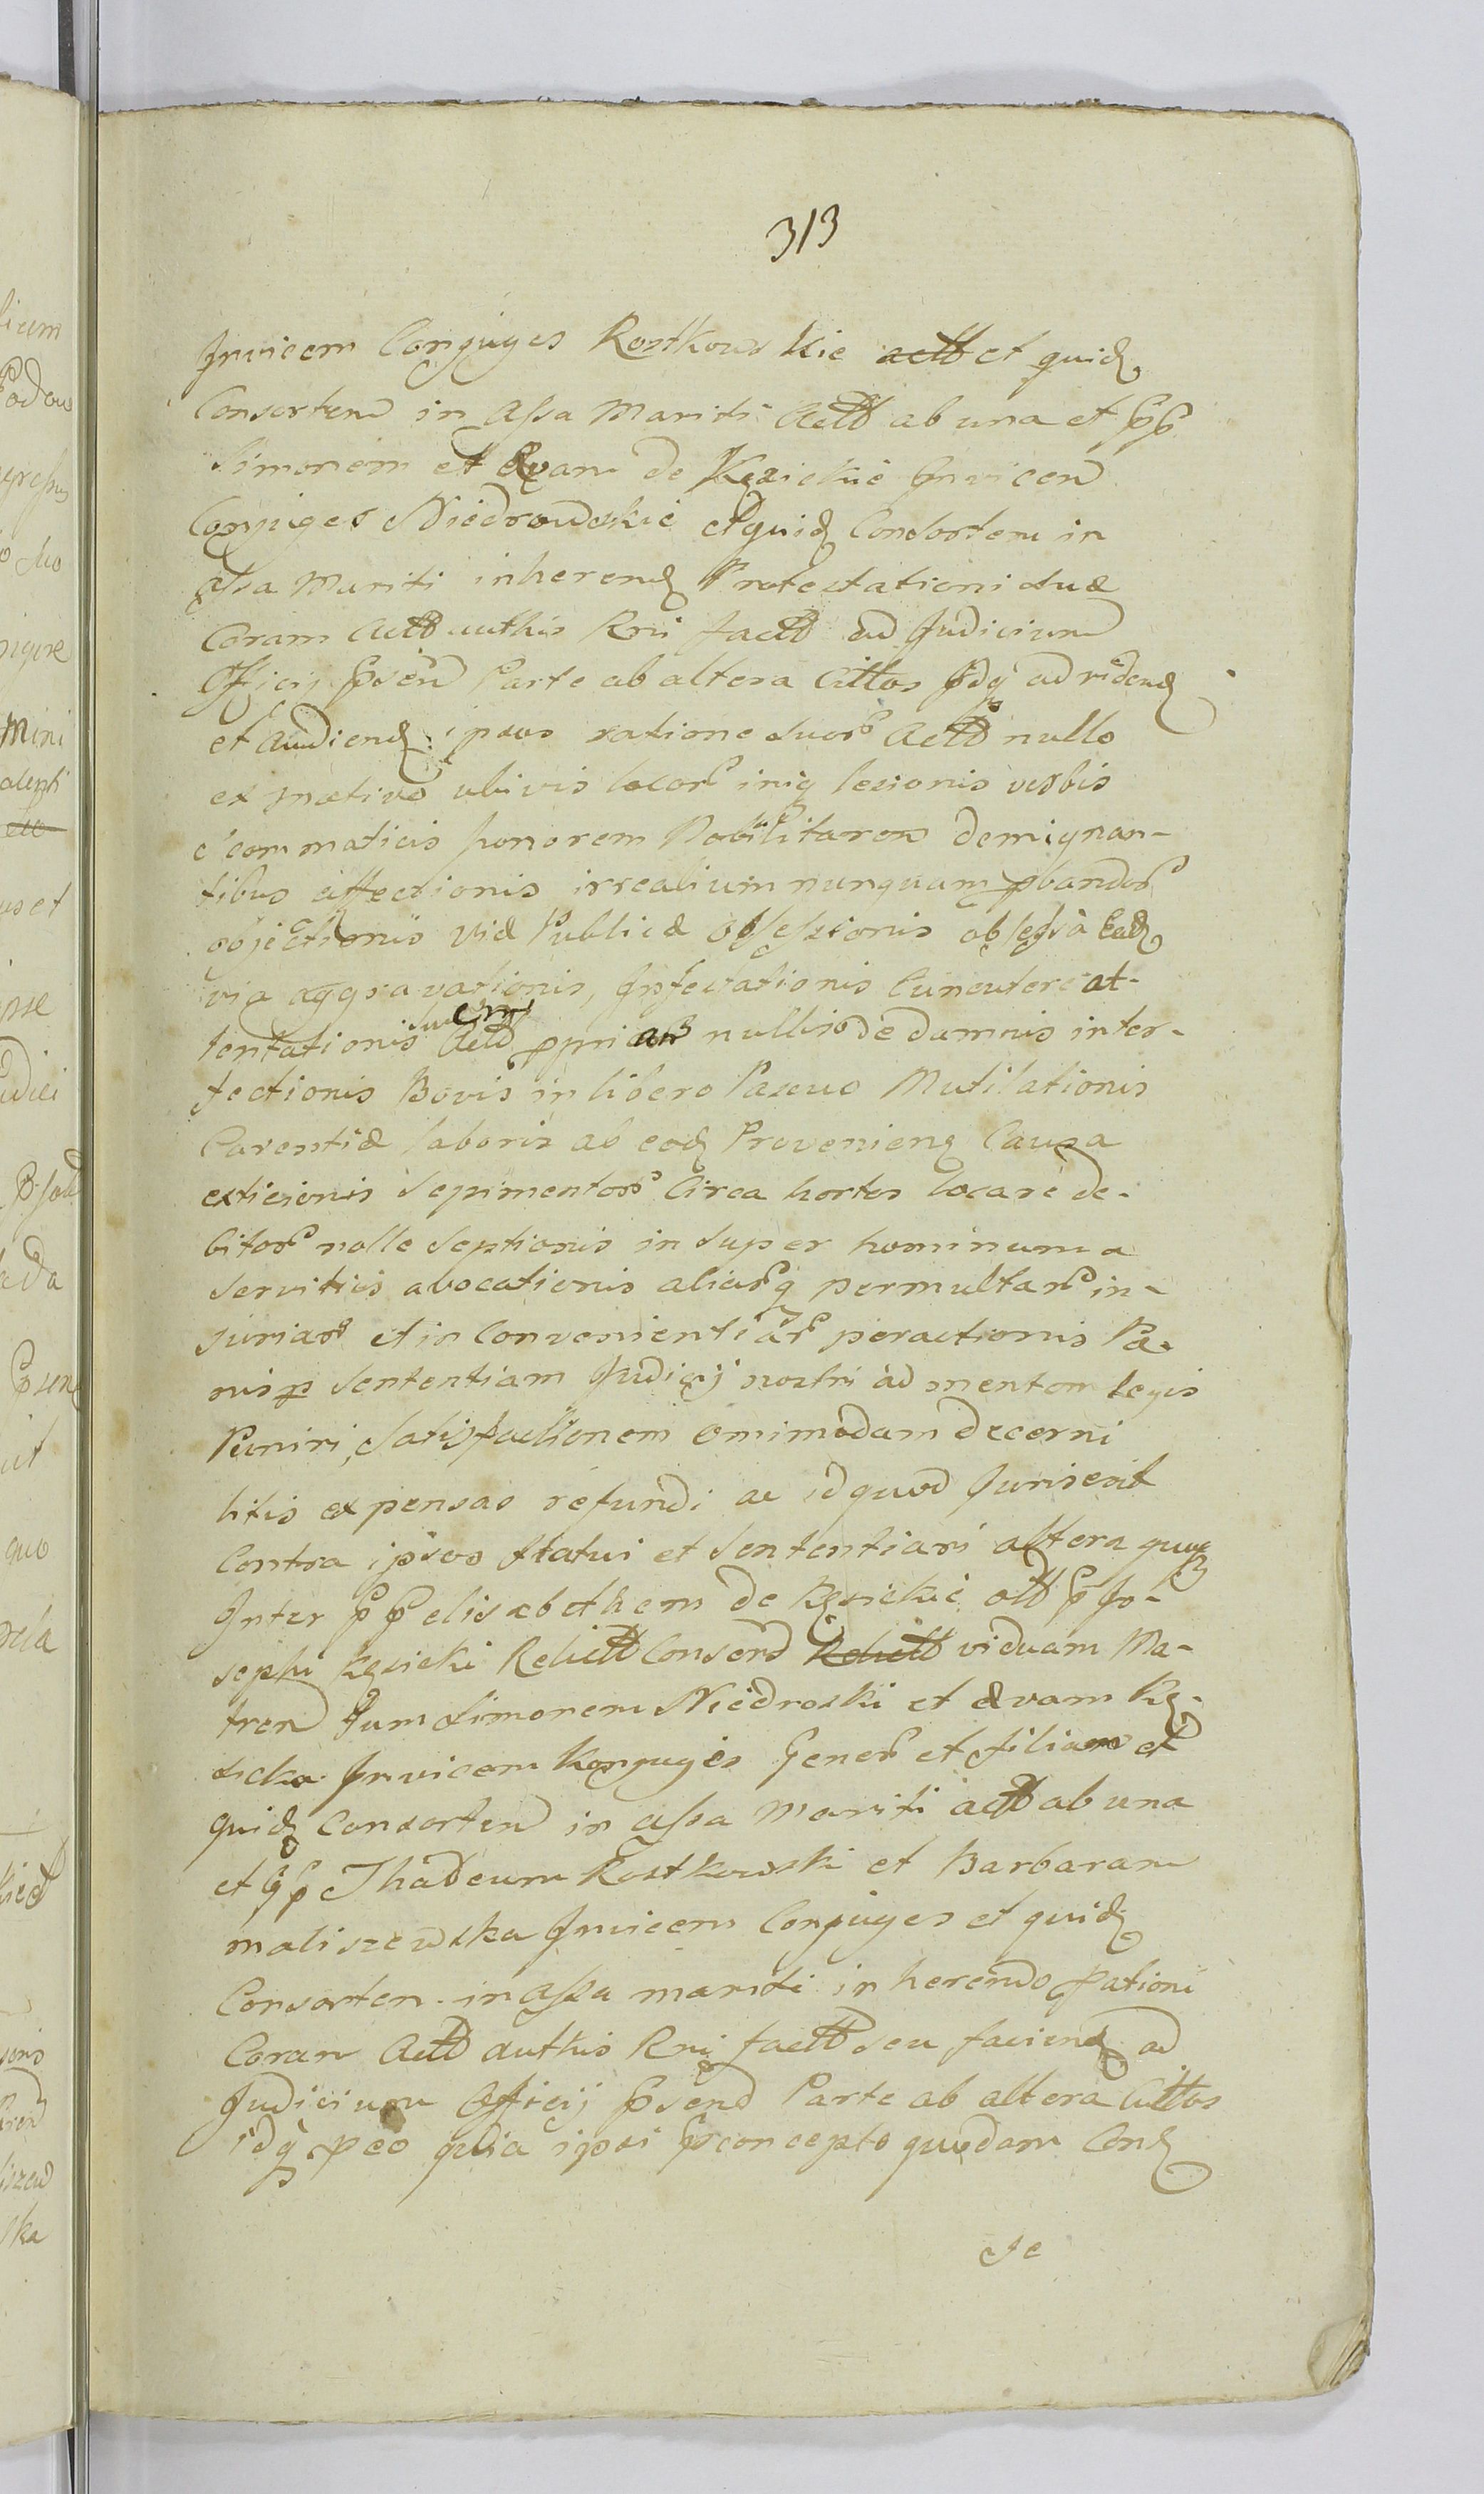 313
Invicem Conjuges Rostkowskie actt et quid
Consorten in assa Mariti Actt ab una et PP
Simonem et Evam de Kęsickie Invicem
Conjuges Niedrowskie et quid Consortem in
assa Mariti inherend Protestationi suæ
Coram Actt authis Rni factt ad Judicium
Officij Psen Parte ab altera Cittos idq ad vidend
et Audiend ipsos ratione suor Actt nullo
ex motivo ubivis locor iniq lesionis verbis
c commaticis honorem Nobilitarem demignan-
tibus affectionis irrealium nunquam pbandor
objectionis viæ Publicæ obsessionis ob ead
via aggravationis, Infestationis Cuneutere at-
tentationis suem Actt ppriar nulliode damnis inter-
fectionis Bovis in libero Pascuo Mutilationis
Carentiæ laboris ab eod Provenienq Causa
exticionis Sepimentor Circa hortos locare de-
bitor nolle Septionis in super hominum a
servitiis avocationis aliarq permultar in-
juriar et in Convenientiar peractionis Pæ-
nis p Sententiam Judicij nostri ad mentem legis
Puniri, Satisfactionem omimodam decerni
litis expensas refundi ac id quod Juris erit
Contra ipsos statui et Sententiari altera quoq
Inter PP elisabethem de Kęsickie ott P Jo-
sephi Kęsicki Relictt Consord Relictt viduam Ma-
trem Tum Simonem Niedroski et Evam Kę-
sicka Invicem Konjuges Gener et filiam et
quid Consorten in assa Mariti actt ab una
et PP Thadeum Rostkowski et Barbaram
maliszewska Invicem Conjuges et quid
Consorten in assa mariti inherendo ptationi
Coram Actt authis Rni factt seu faciend ad
Judicium Officij Psend Parte ab altera Cittos
idq peo quia ipsi Pconcepto quodam Cond
se